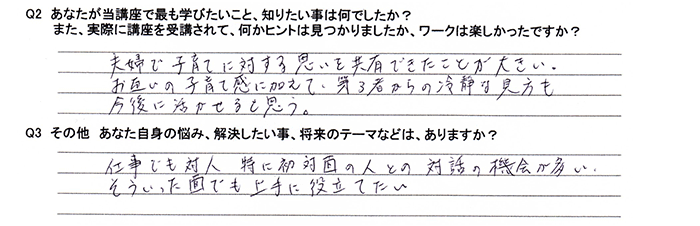 Q2 あなたが当講座で最も学びたいこと、知りたい事は何でしたか？
また、実際に講座を受講されて、何かヒントは見つかりましたか、ワークは楽しかったですか？
夫婦で子育てに対する思いを共有できたことが大きい。
お互いの子育て感に加えて、第3者からの冷静な見方も
今後に活かせると思う。
Q3 その他 あなた自身の悩み、解決したい事、将来のテーマなどは、ありますか？
仕事でも対人 特に初対面の人との対話の機会が多い.
そういった面でも上手に役立てたい